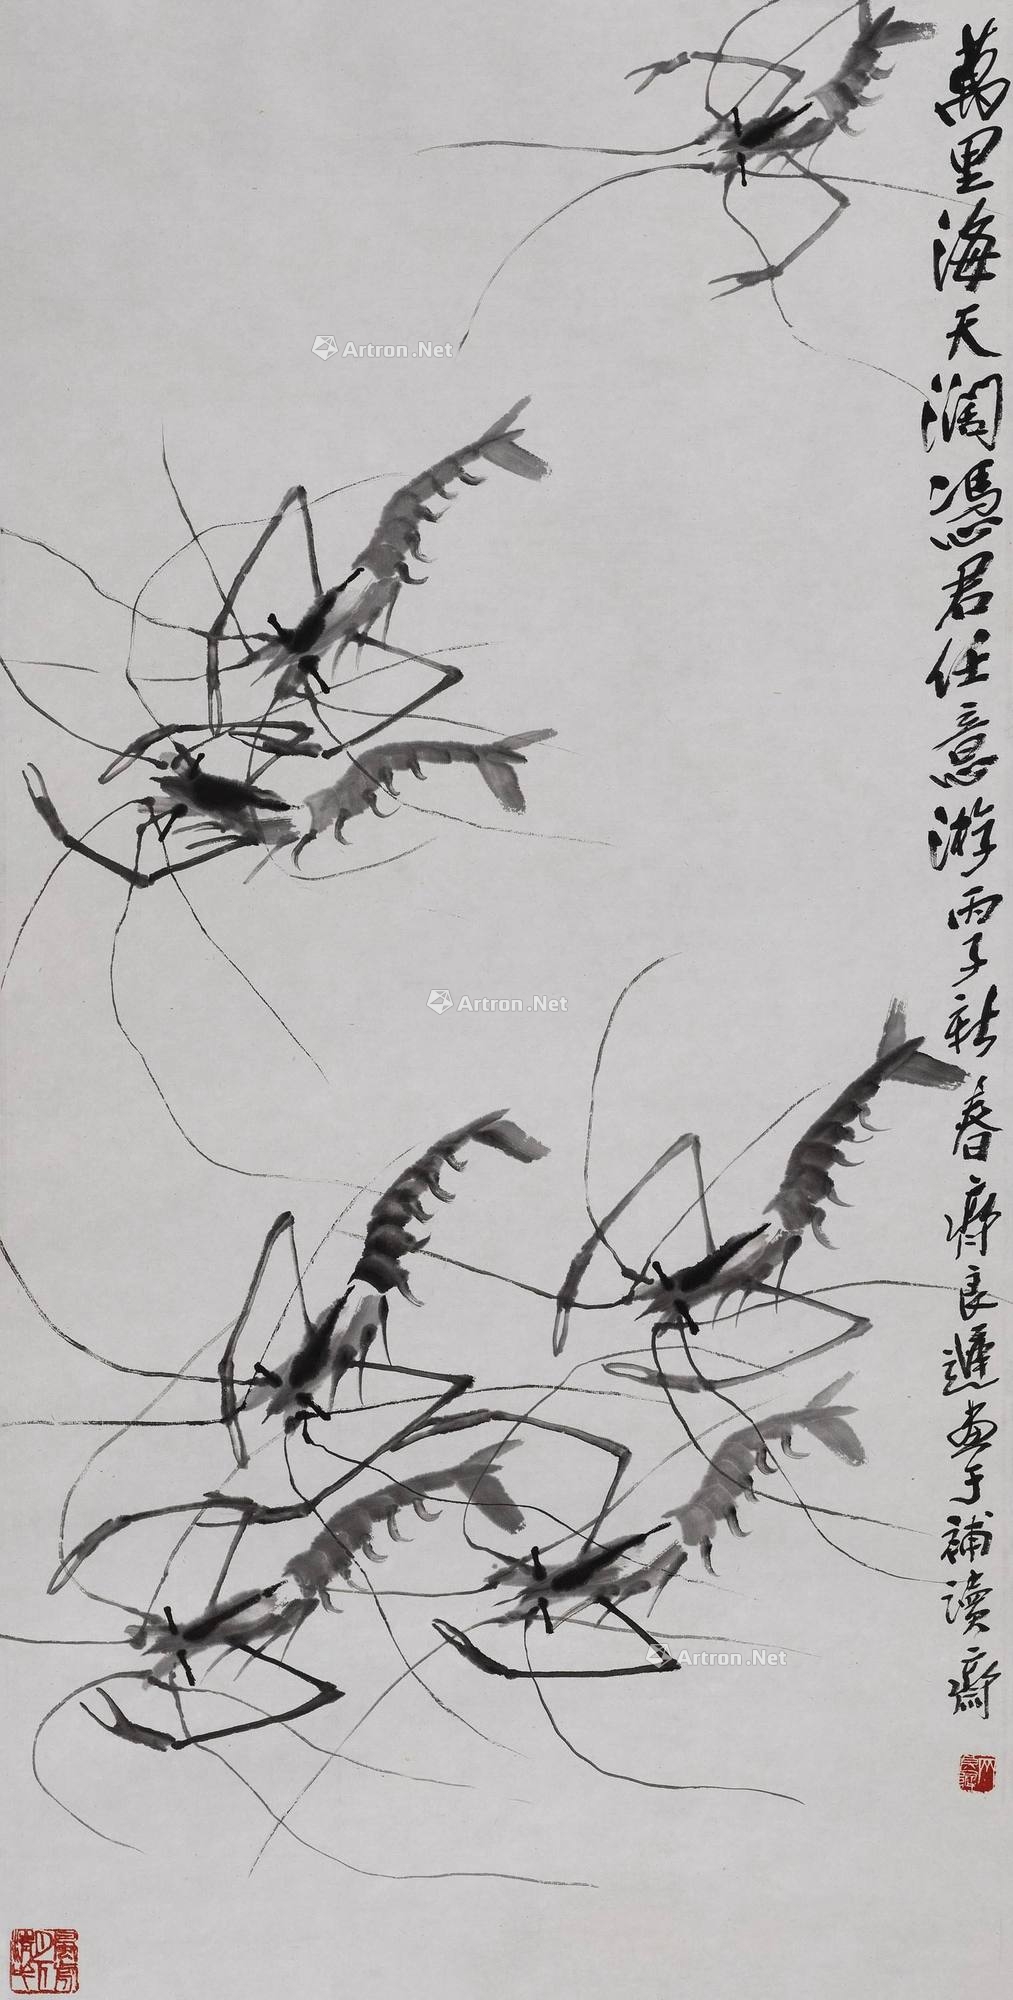 萬里海天闊憑君任意游丙子新春齊良遲画于補讀齋
Artron.Net
Artron.Net
Artron.Net